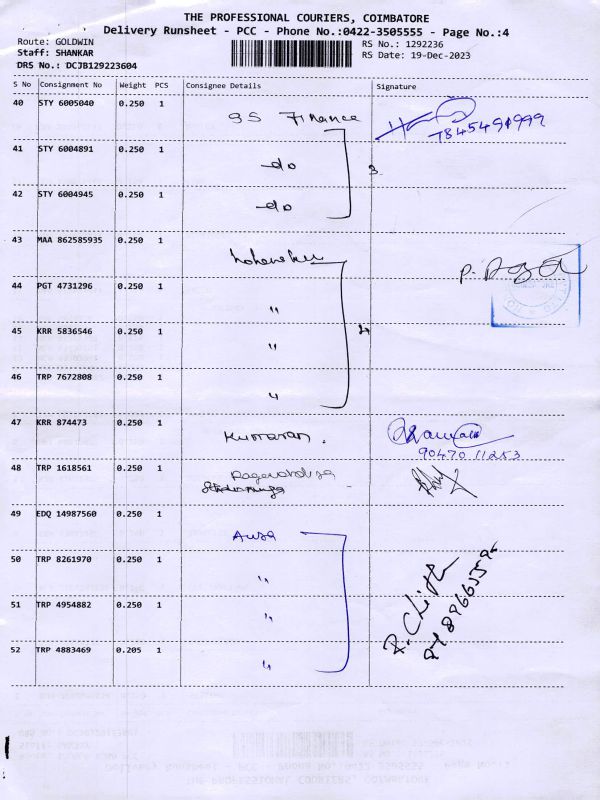 THE PROFESSIONAL COURIERS, COIMBATORE
Delivery Runsheet - PCC - Phone No.:0422-3505555 - Page No.:4
Route: GOLDWIN
Staff: SHANKAR
DRS No.: DCJB129223604
RS No.: 1292236
RS Date: 19-Dec-2023
S No Consignment No Weight PCS Consignee Details Signature
40 STY 6005040 0.250 1 SS Finance
41 STY 6004891 0.250 1 -do
42 STY 6004945 0.250 1 -do
3
43 MAA 862585935 0.250 1
44 PGT 4731296 0.250 1 "
45 KRR 5836546 0.250 1 "
4
46 TRP 7672808 0.250 1 "
47 KRR 874473 0.250 1 Kumaran.
90470 11253
48 TRP 1618561 0.250 1
49 EDQ 14987560 0.250 1
50 TRP 8261970 0.250 1 "
51 TRP 4954882 0.250 1 "
52 TRP 4883469 0.205 1 "